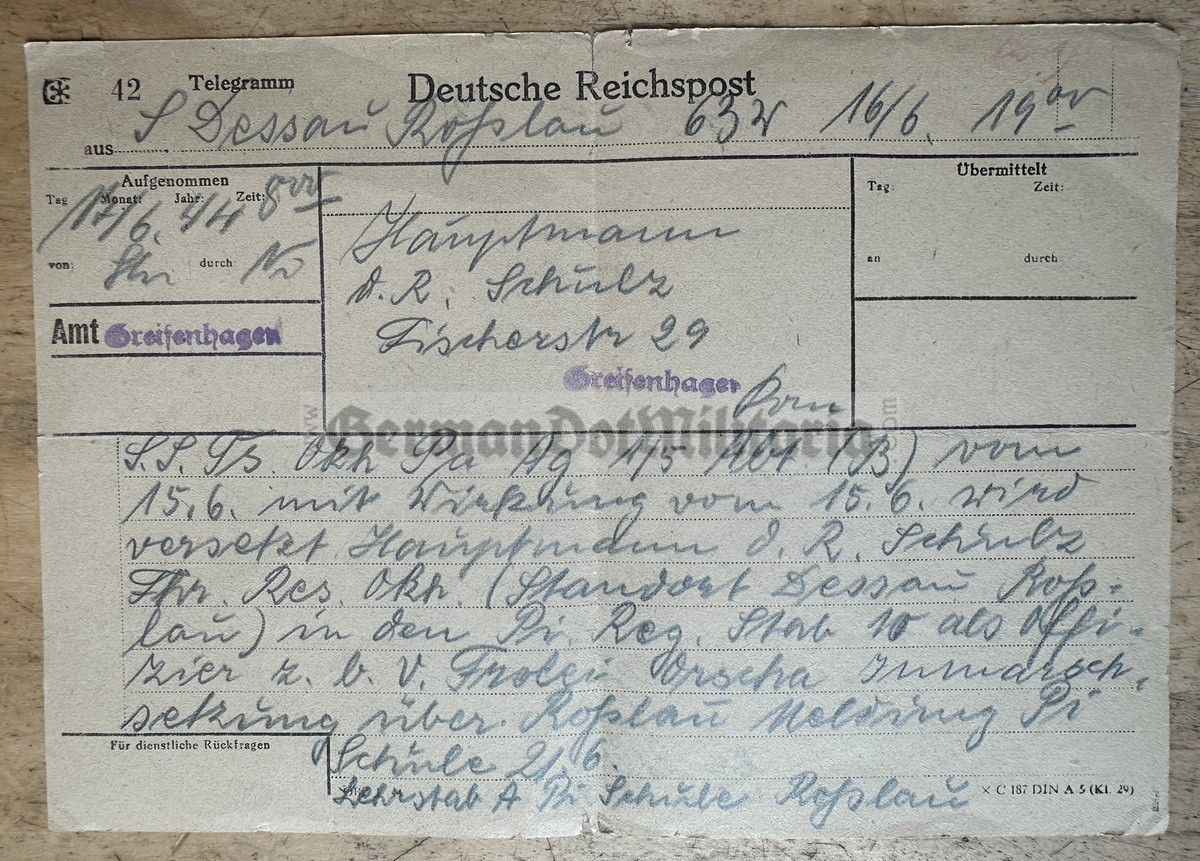 42 Telegramm Deutsche Reichspost
aus S Dessau Roßlau 63 W 16/6. 19⁰⁰
Aufgenommen
Tag Monat: Jahr: Zeit:
17/6. 44 8⁰⁰
von: durch
Amt Greifenhagen
Hauptmann
d. R. Schulz
Fischerstr 29
Greifenhagen Pom
Übermittelt
Tag: Zeit:
an durch:
www.GermanDotMilitaria.com
S.S. Okh Pa Ag 1/5 Abt. (B) vom
15.6. mit Wirkung vom 15.6. wird
versetzt Hauptmann d. R. Schulz
Fhr. Res. Okh. (Standort Dessau Roß-
lau) in den Pi. Reg. Stab 10 als Offi-
zier z. b. V. Frolei Orscha Inmarsch-
setzung über Roßlau Meldung Pi
Schule 21.6.
Lehrstab A Pi Schule Roßlau
Für dienstliche Rückfragen
× C 187 DIN A 5 (Kl. 29)